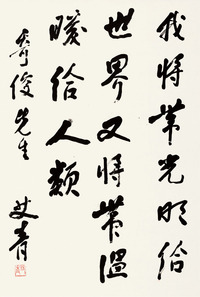 我将带光明给
世界又将带温
暖给人类
奇俊先生
艾青